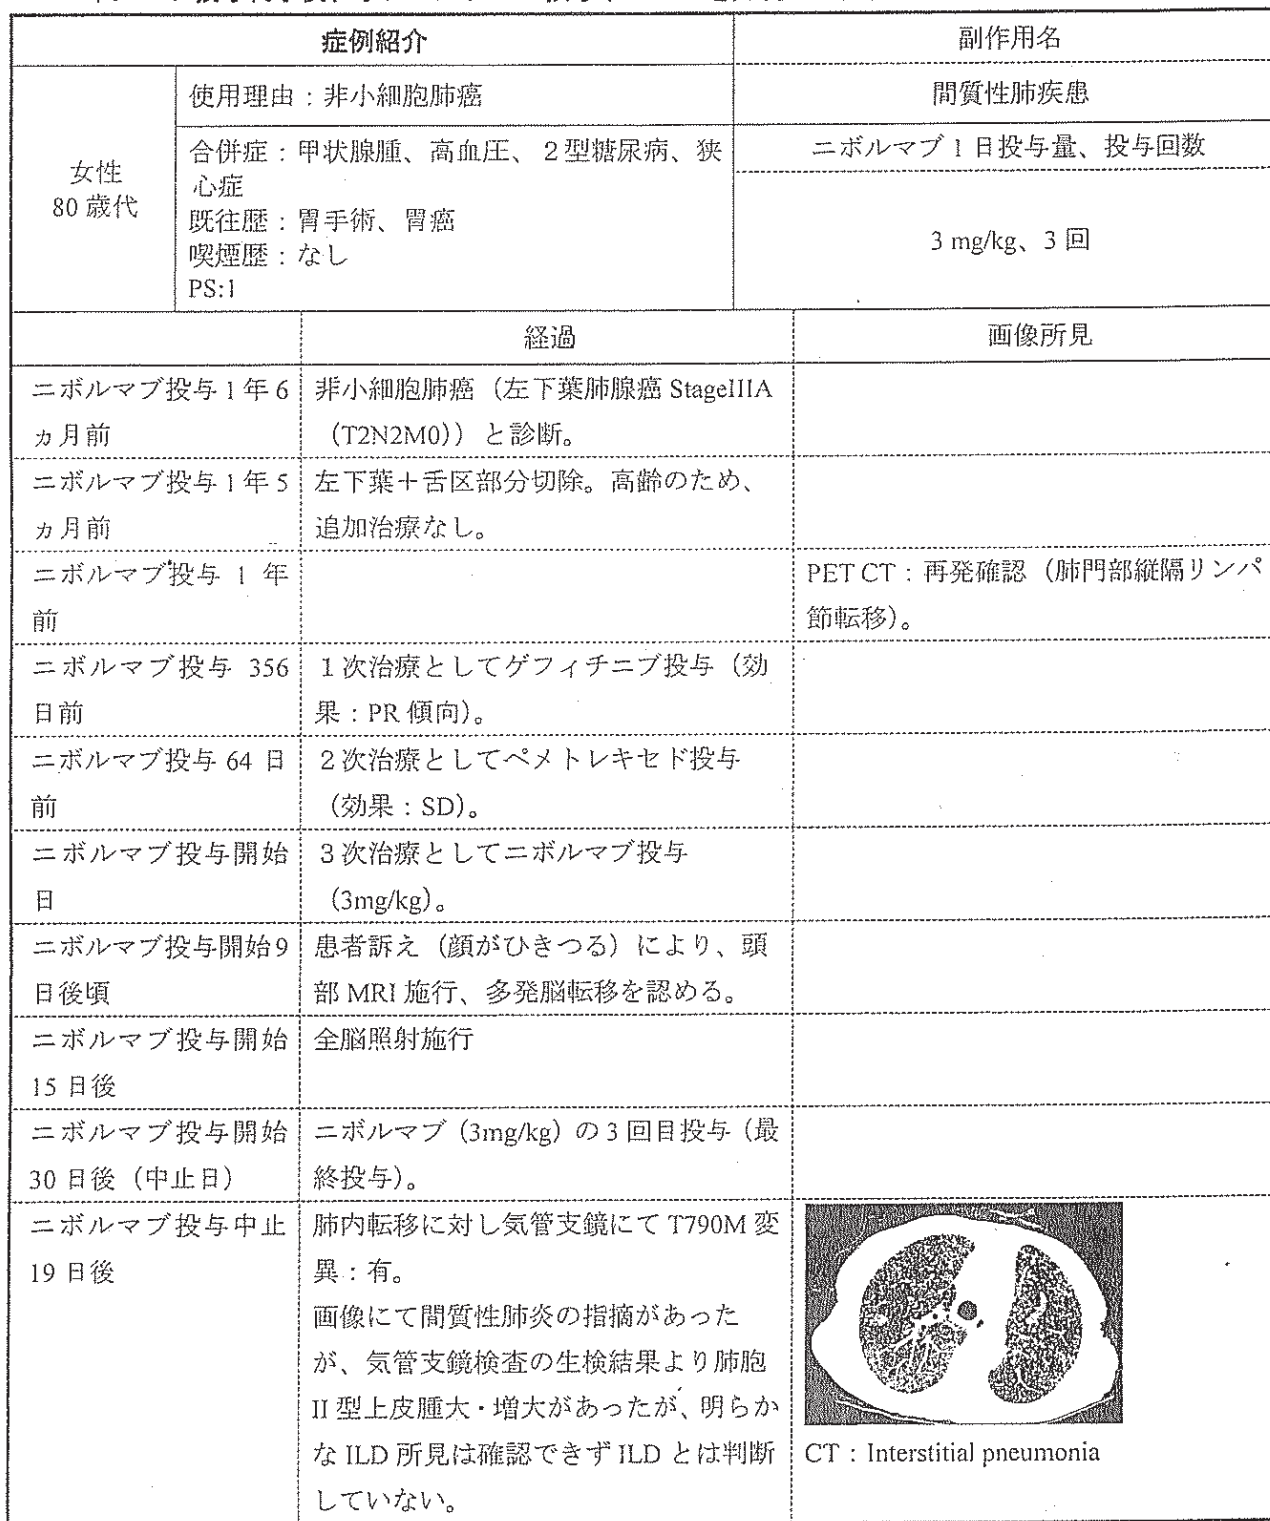 症例紹介
副作用名
女性
80 歳代
使用理由：非小細胞肺癌
間質性肺疾患
合併症：甲状腺腫、高血圧、２型糖尿病、狭
心症
既往歴：胃手術、胃癌
喫煙歴：なし
PS:1
ニボルマブ 1 日投与量、投与回数
3 mg/kg、3 回
経過
画像所見
ニボルマブ投与 1 年 6
カ月前
非小細胞肺癌（左下葉肺腺癌 StageIIIA
（T2N2M0））と診断。
ニボルマブ投与 1 年 5
カ月前
左下葉＋舌区部分切除。高齢のため、
追加治療なし。
ニボルマブ投与 1 年
前
PET CT：再発確認（肺門部縦隔リンパ
節転移）。
ニボルマブ投与 356
日前
１次治療としてゲフィチニブ投与（効
果：PR 傾向）。
ニボルマブ投与 64 日
前
２次治療としてペメトレキセド投与
（効果：SD）。
ニボルマブ投与開始
日
３次治療としてニボルマブ投与
（3mg/kg）。
ニボルマブ投与開始 9
日後頃
患者訴え（顔がひきつる）により、頭
部 MRI 施行、多発脳転移を認める。
ニボルマブ投与開始
15 日後
全脳照射施行
ニボルマブ投与開始
30 日後（中止日）
ニボルマブ（3mg/kg）の 3 回目投与（最
終投与）。
ニボルマブ投与中止
19 日後
肺内転移に対し気管支鏡にて T790M 変
異：有。
画像にて間質性肺炎の指摘があった
が、気管支鏡検査の生検結果より肺胞
II 型上皮腫大・増大があったが、明らか
な ILD 所見は確認できず ILD とは判断
していない。
CT：Interstitial pneumonia